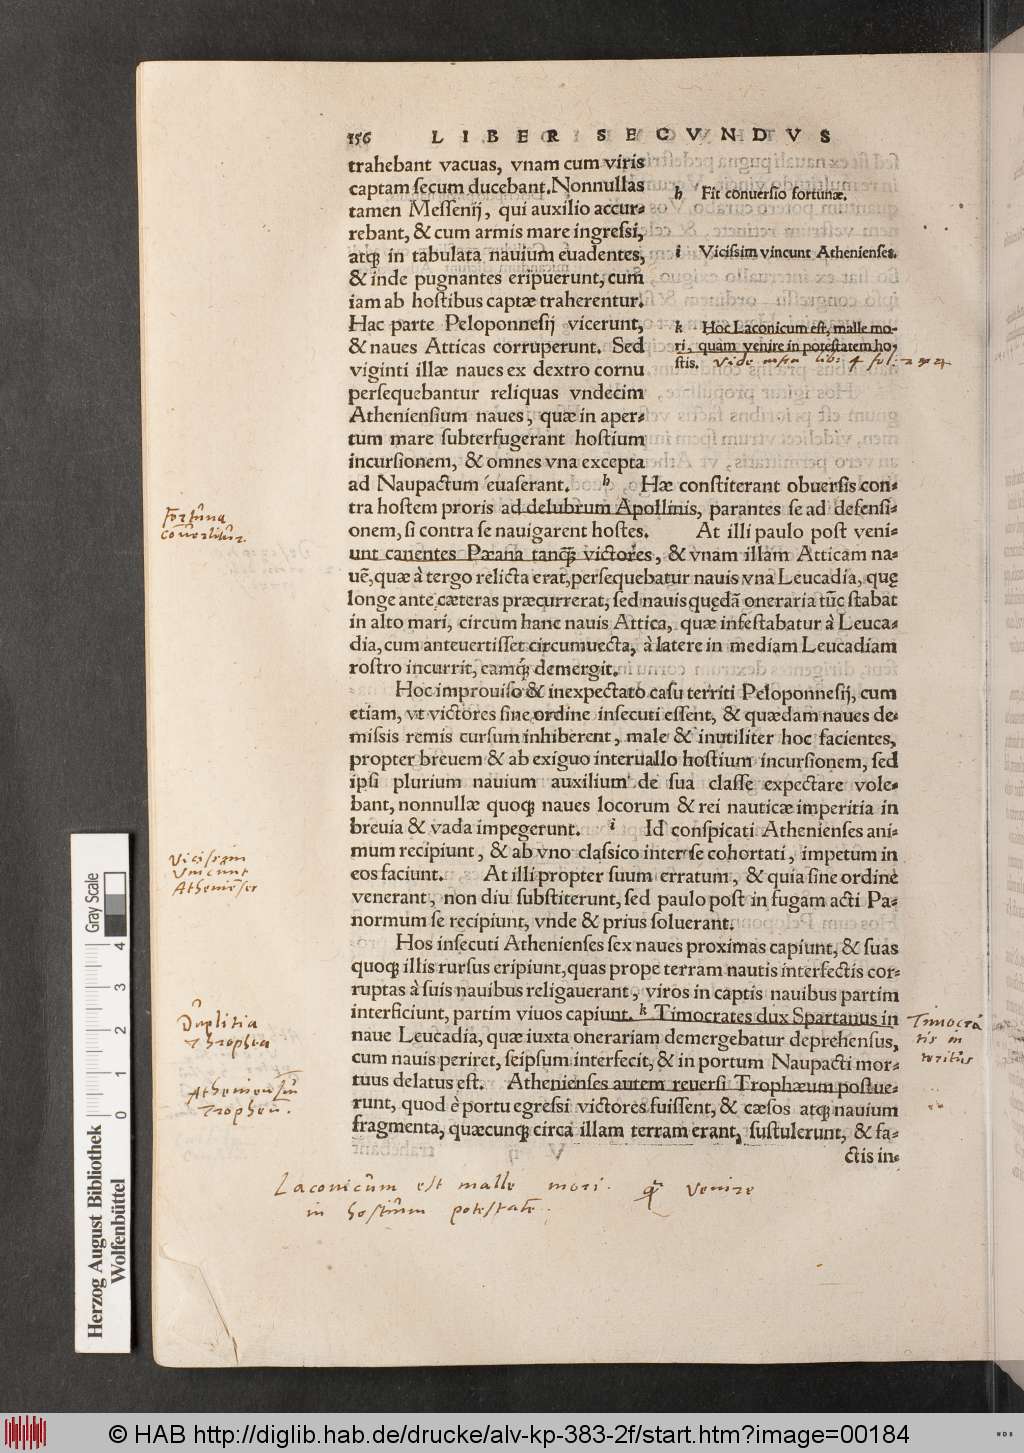 156 LIBER SECVNDVS
trahebant vacuas, vnam cum viris
captam secum ducebant. Nonnullas
tamen Messenij, qui auxilio accur-
rebant, & cum armis mare ingressi,
atq; in tabulata nauium euadentes,
& inde pugnantes eripuerunt, cum
iam ab hostibus captæ traherentur.
Hac parte Peloponnesij vicerunt,
& naues Atticas corruperunt. Sed
viginti illæ naues ex dextro cornu
persequebantur reliquas vndecim
Atheniensium naues, quæ in aper-
tum mare subterfugerant hostium
incursionem, & omnes vna excepta
ad Naupactum euaserant. h Hæ constiterant obuersis con-
tra hostem proris ad delubrum Apollinis, parantes se ad defensi-
onem, si contra se nauigarent hostes. At illi paulo post veni-
unt canentes Pæana tanq; victores, & vnam illam Atticam na-
uē, quæ à tergo relicta erat, persequebatur nauis vna Leucadia, quę
longe ante cæteras præcurrerat, sed nauis quędā oneraria tūc stabat
in alto mari, circum hanc nauis Attica, quæ infestabatur à Leuca-
dia, cum anteuertisset circumuecta, à latere in mediam Leucadiam
rostro incurrit, eamq́; demergit.
Hoc improuiso & inexpectato casu territi Peloponnesij, cum
etiam, vt victores sine ordine insecuti essent, & quædam naues de-
missis remis cursum inhiberent, male & inutiliter hoc facientes,
propter breuem & ab exiguo interuallo hostium incursionem, sed
ipsi plurium nauium auxilium de sua classe expectare vole-
bant, nonnullæ quoq; naues locorum & rei nauticæ imperitia in
breuia & vada impegerunt. i Id conspicati Athenienses ani-
mum recipiunt, & ab vno classico inter se cohortati, impetum in
eos faciunt. At illi propter suum erratum, & quia sine ordine
venerant, non diu substiterunt, sed paulo post in fugam acti Pa-
normum se recipiunt, vnde & prius soluerant.
Hos insecuti Athenienses sex naues proximas capiunt, & suas
quoq; illis rursus eripiunt, quas prope terram nautis interfectis cor-
ruptas à suis nauibus religauerant, viros in captis nauibus partim
interficiunt, partim viuos capiunt. k Timocrates dux Spartanus in
naue Leucadia, quæ iuxta onerariam demergebatur deprehensus,
cum nauis periret, seipsum interfecit, & in portum Naupacti mor-
tuus delatus est. Athenienses autem reuersi Trophæum postue-
runt, quod è portu egressi victores fuissent, & cæsos atq; nauium
fragmenta, quæcunq; circa illam terram erant, sustulerunt, & fa-
ctis in-
h Fit conuersio fortunæ.
i Vicissim vincunt Athenienses.
k Hoc Laconicum est, malle mo-
ri, quàm venire in potestatem ho-
stis. Vide infra lib: 4 fol:
Fortuna
Vicissim
Vincunt
Athenienses
Duplitia
Trophea
Atheniensiū
Tropheū.
Timocra
tis in
teritus
Laconicum est malle mori. venire
in hostium potestatē.
Gray Scale
0 1 2 3 4
Herzog August Bibliothek
Wolfenbüttel
© HAB http://diglib.hab.de/drucke/alv-kp-383-2f/start.htm?image=00184